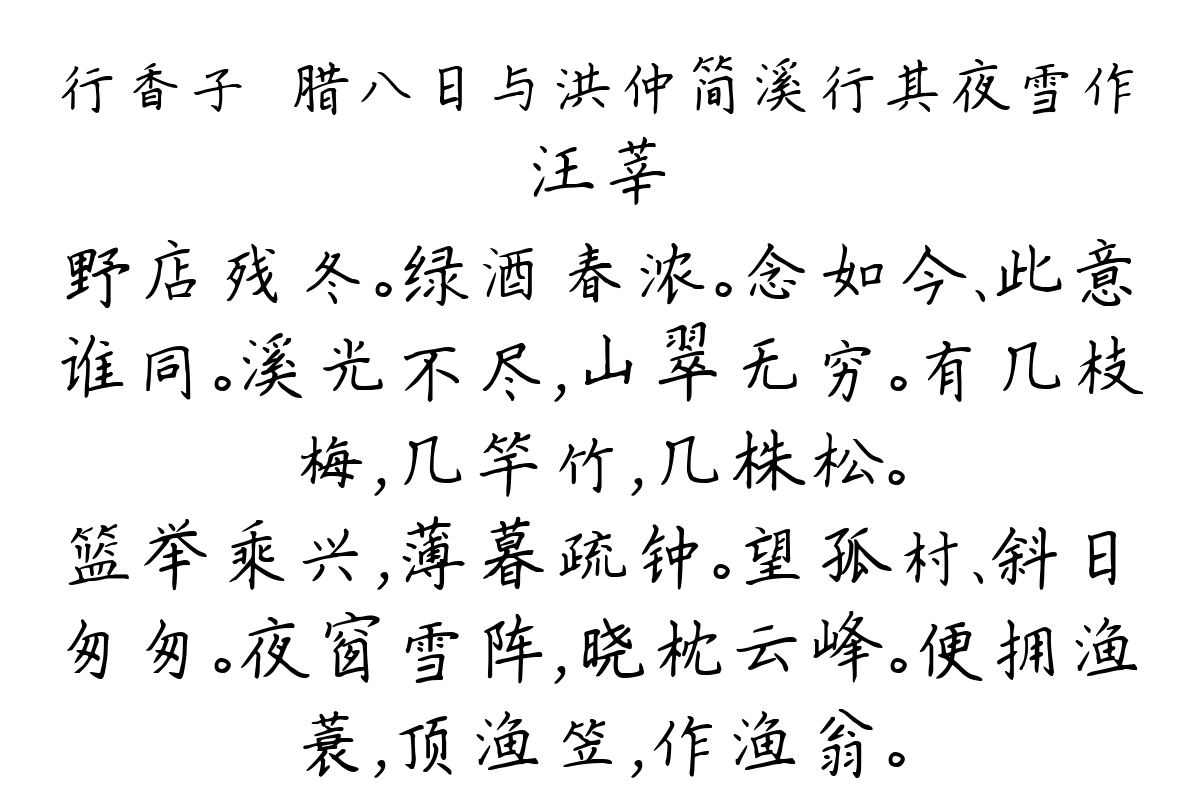 行香子 腊八日与洪仲简溪行其夜雪作
汪莘
野店残冬。绿酒春浓。念如今、此意
谁同。溪光不尽,山翠无穷。有几枝
梅,几竿竹,几株松。
篮举乘兴,薄暮疏钟。望孤村、斜日
匆匆。夜窗雪阵,晓枕云峰。便拥渔
蓑,顶渔笠,作渔翁。